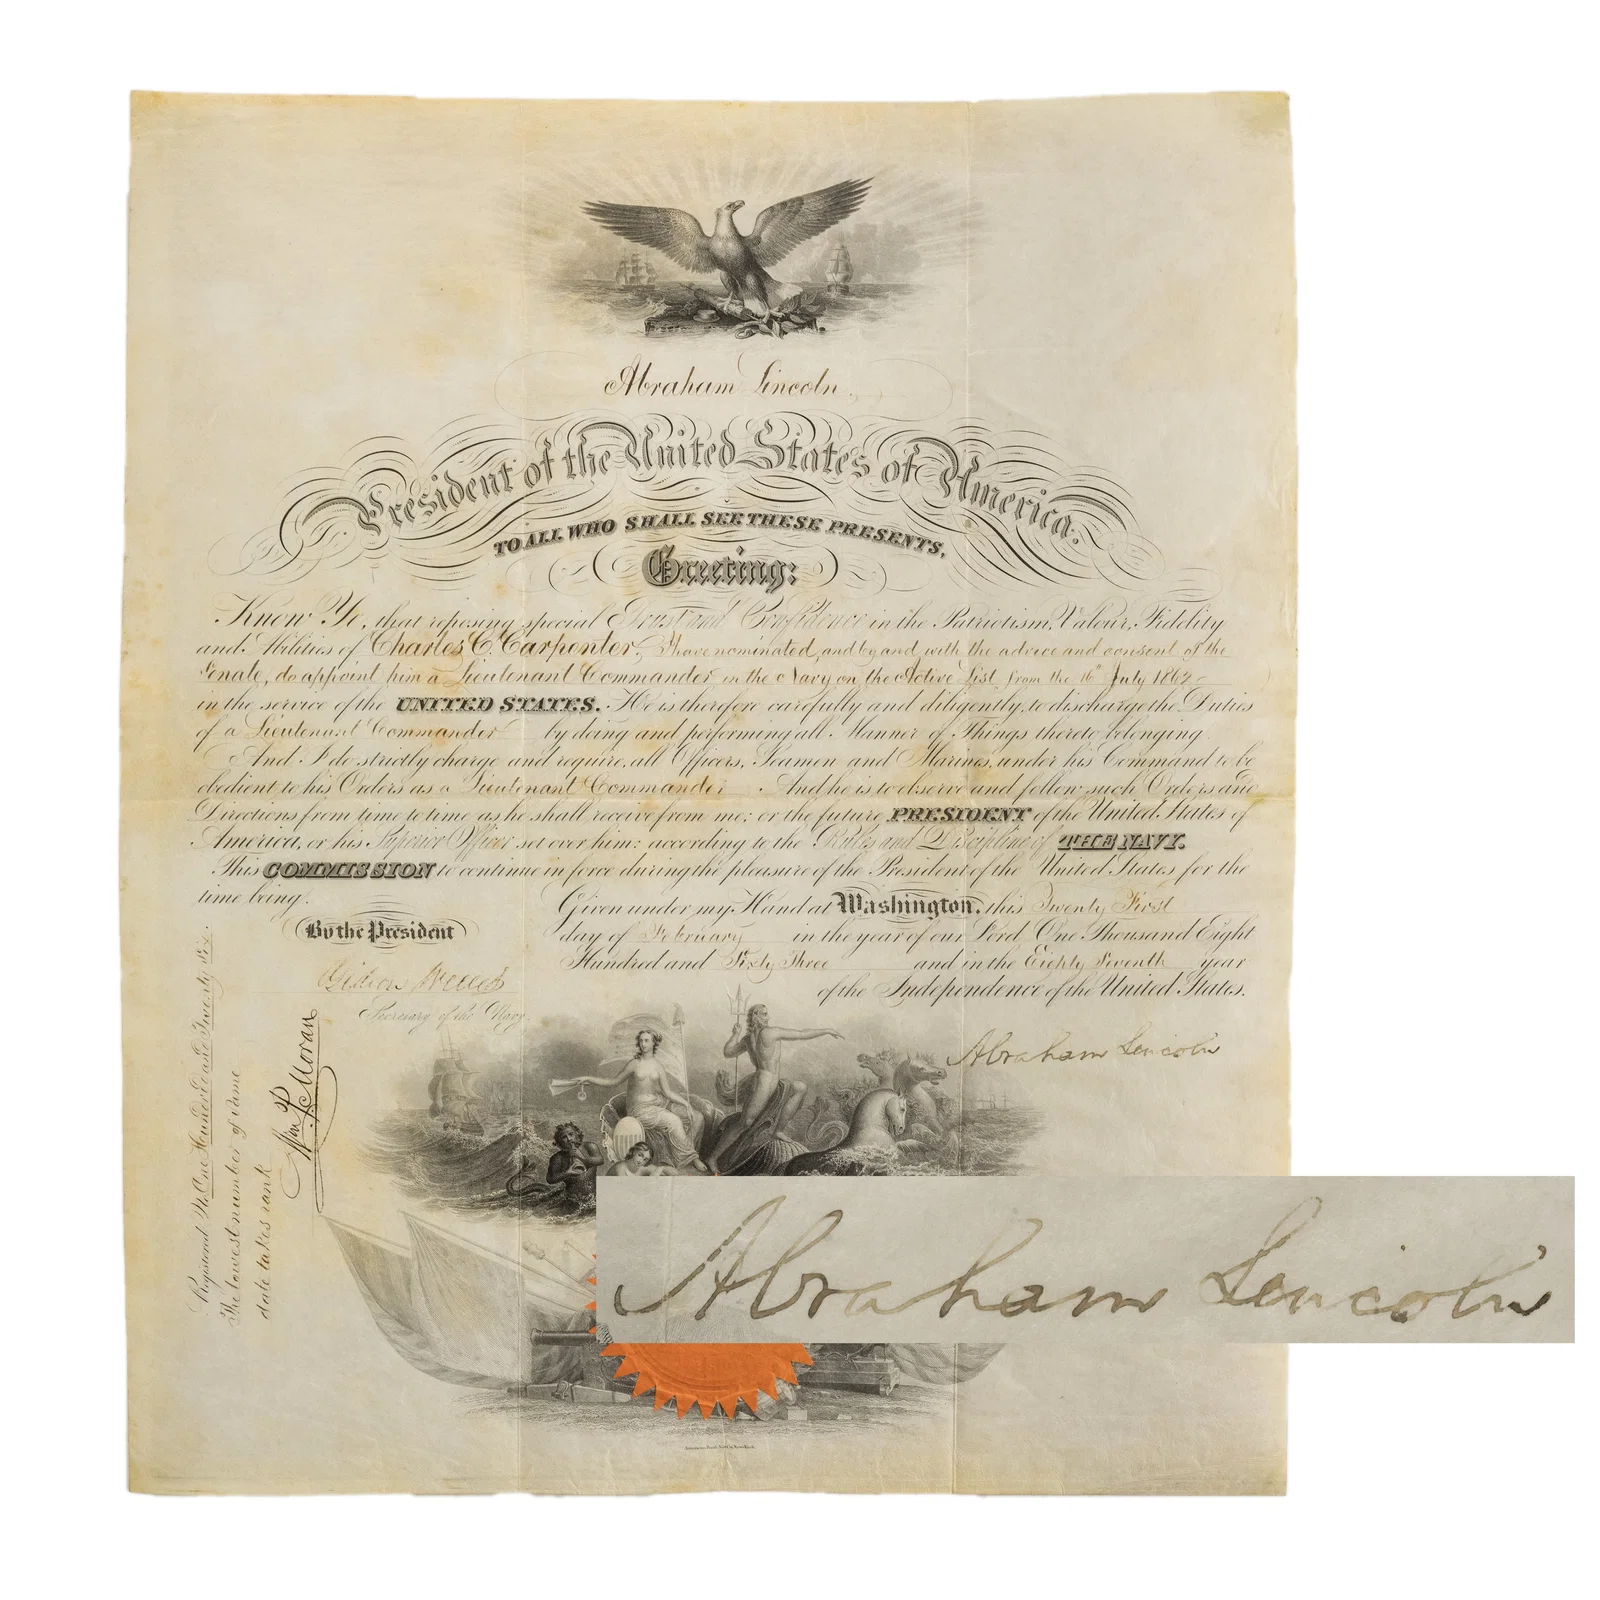 Abraham Lincoln,
President of the United States of America.
TO ALL WHO SHALL SEE THESE PRESENTS,
Greeting:
Know Ye, that reposing special Trust and Confidence in the Patriotism, Valour, Fidelity
and Abilities of Charles C. Carpenter, I have nominated, and by and with the advice and consent of the
Senate, do appoint him a Lieutenant Commander in the Navy on the Active List from the 16th July 1862
in the service of the UNITED STATES. He is therefore carefully and diligently, to discharge the Duties
of a Lieutenant Commander by doing and performing all Manner of Things thereto belonging.
And I do strictly charge and require, all Officers, Seamen and Marines, under his Command to be
obedient to his Orders as a Lieutenant Commander. And he is to observe and follow such Orders and
Directions from time to time as he shall receive from me: or the future PRESIDENT of the United States of
America, or his Superior Officer set over him: according to the Rules and Discipline of THE NAVY.
This COMMISSION to continue in force during the pleasure of the President of the United States for the
time being.
Given under my Hand at Washington, this Twenty First
day of February in the year of our Lord, One Thousand Eight
Hundred and Sixty Three and in the Eighty Seventh year
of the Independence of the United States.
By the President
Gideon Welles
Secretary of the Navy.
Abraham Lincoln
Registered No. One Hundred and Twenty Six.
The lowest number of same
date takes rank
Wm P. Moran
Abraham Lincoln